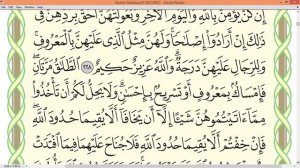 Mushaf Madinah.pdf (SECURED) - Adobe Reader
إِن كُنَّ يُؤْمِنَّ بِٱللَّهِ وَٱلْيَوْمِ ٱلْآخِرِ وَبُعُولَتُهُنَّ أَحَقُّ بِرَدِّهِنَّ فِي
ذَٰلِكَ إِنْ أَرَادُوٓا۟ إِصْلَٰحًا وَلَهُنَّ مِثْلُ ٱلَّذِي عَلَيْهِنَّ بِٱلْمَعْرُوفِ
وَلِلرِّجَالِ عَلَيْهِنَّ دَرَجَةٌ وَٱللَّهُ عَزِيزٌ حَكِيمٌ ٢٢٨ ٱلطَّلَٰقُ مَرَّتَانِ
فَإِمْسَاكٌۢ بِمَعْرُوفٍ أَوْ تَسْرِيحٌۢ بِإِحْسَٰنٍ وَلَا يَحِلُّ لَكُمْ أَن تَأْخُذُوا۟
مِمَّآ ءَاتَيْتُمُوهُنَّ شَيْـًٔا إِلَّآ أَن يَخَافَآ أَلَّا يُقِيمَا حُدُودَ ٱللَّهِ
فَإِنْ خِفْتُمْ أَلَّا يُقِيمَا حُدُودَ ٱللَّهِ فَلَا جُنَاحَ عَلَيْهِمَا فِيمَا ٱفْتَدَتْ